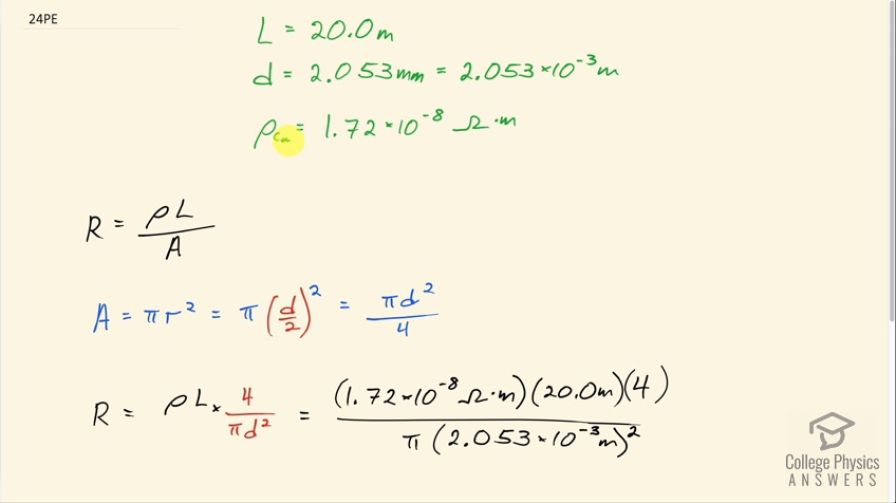 24PE
L = 20.0m
d = 2.053mm = 2.053×10⁻³m
ρ_Cu = 1.72×10⁻⁸ Ω·m
R = ρL/A
A = πr² = π(d/2)² = πd²/4
R = ρL × 4/πd² = (1.72×10⁻⁸ Ω·m)(20.0m)(4)/π(2.053×10⁻³m)²
College Physics
ANSWERS